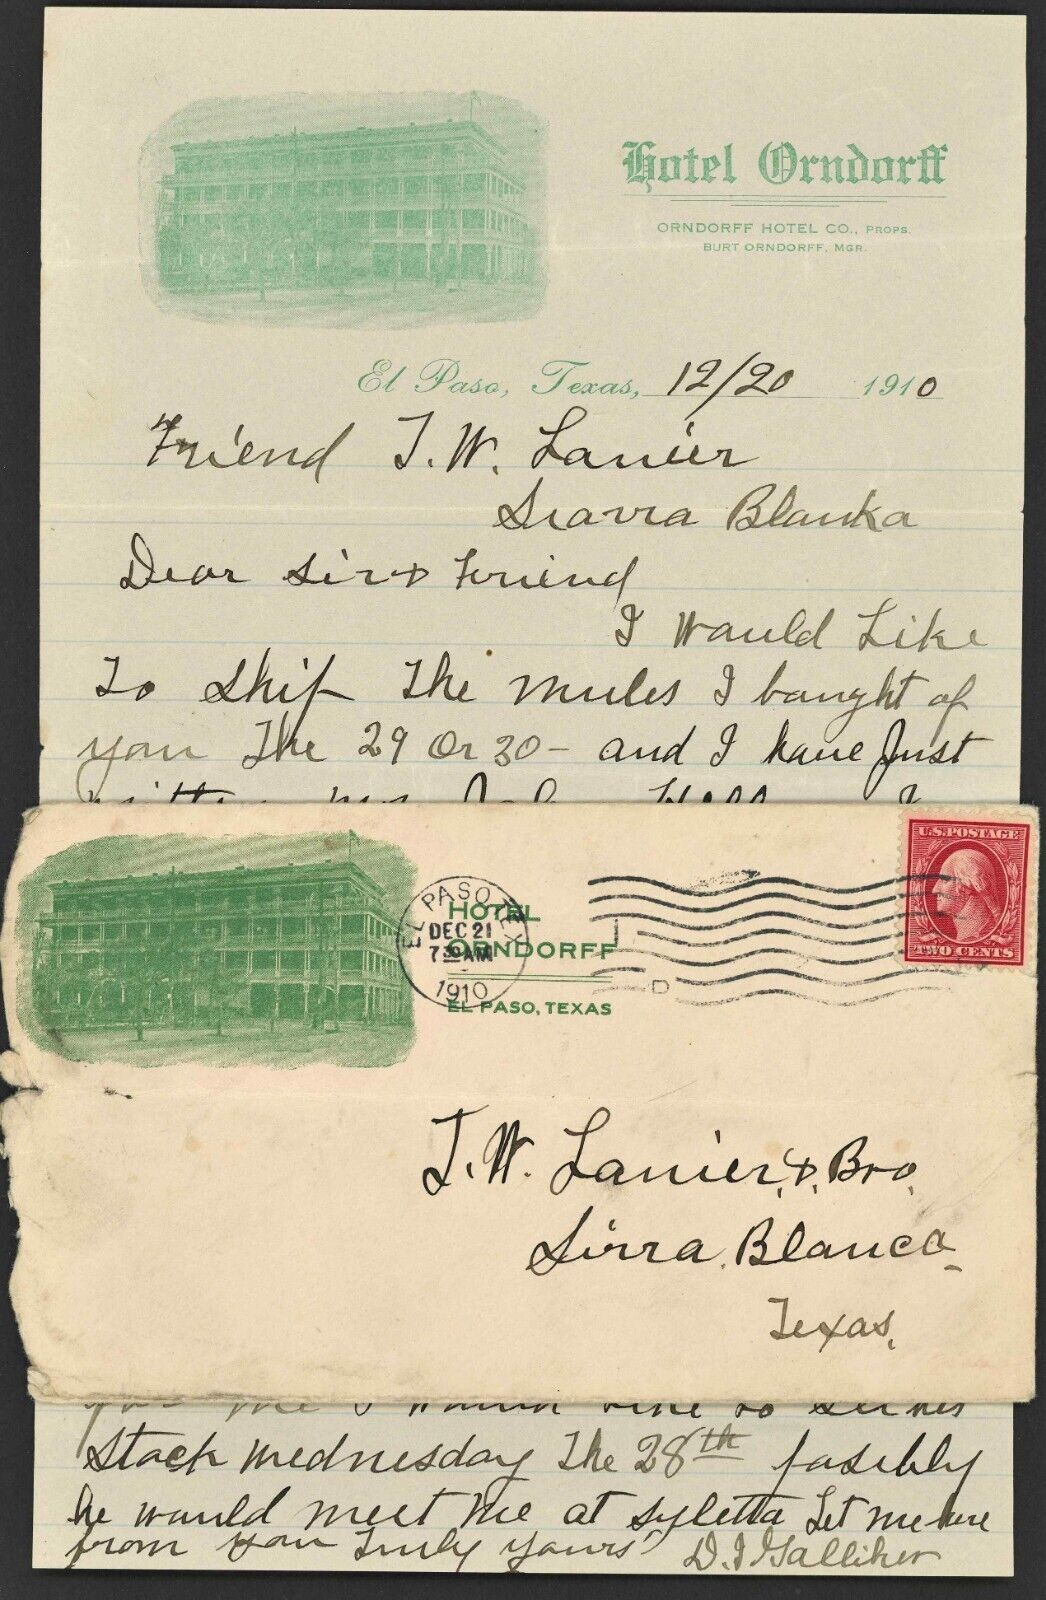 Hotel Orndorff
ORNDORFF HOTEL CO., PROPS.
BURT ORNDORFF, MGR.
El Paso, Texas, 12/20 1910
Friend J. W. Lanier
Siarra Blanka
Dear Sir & Friend
I Would Like
To Ship The mules I bought of
you The 29 Or 30 - and I have Just
EL PASO, TEX
DEC 21
7 30 AM
1910
HOTEL
ORNDORFF
EL PASO, TEXAS
D
U.S. POSTAGE
TWO CENTS
J. W. Lanier, & Bro,
Sirra, Blanca
Texas,
me I would like to see his
Stock Wednesday The 28th Posibly
he would meet me at Syletta Let me here
from you Truly yours D. J. Galliher